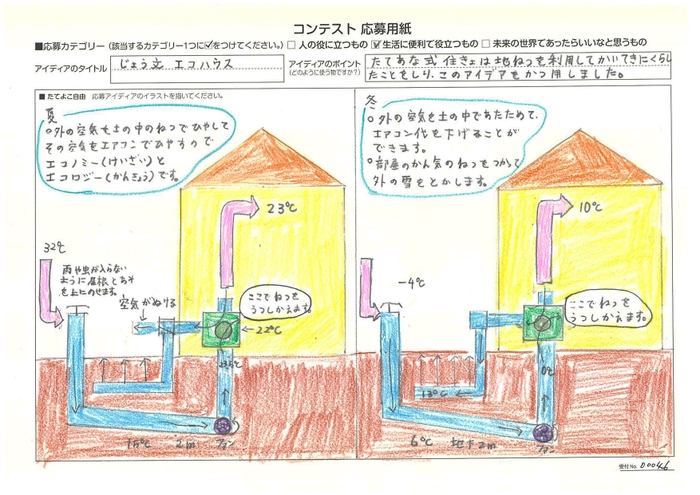 コンテスト 応募用紙
■応募カテゴリー（該当するカテゴリー1つに☑をつけてください。）□ 人の役に立つもの ☑ 生活に便利で役立つもの □ 未来の世界であったらいいなと思うもの
アイディアのタイトル
じょう文 エコハウス
アイディアのポイント
（どのように使う物ですか？）
たてあな式 住きょは地ねつを利用してかいてきにくらし
たことをしり、このアイデアをかつ用しました。
■たてよこ自由 応募アイディアのイラストを描いてください。
夏
○外の空気を土の中のねつでひやして
その空気をエアコンでひやすので
エコノミー(けいざい)と
エコロジー(かんきょう)です。
23℃
32℃
雨や虫が入らない
ように屋根とあみ
を上にのせます。
空気がぬける
ここでねつを
うつしかえます。
22℃
15℃
2m
ファン
冬
○外の空気を土の中であたためて、
エアコン代を下げることが
できます。
○部屋のかん気のねつをつかって
外の雪をとかします。
10℃
-4℃
ここでねつを
うつしかえます。
0℃
13℃
6℃
地下2m
ファン
受付No. 00046